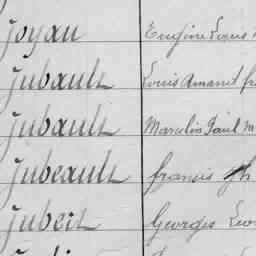 Joyau Eugène Louis
Jubault Louis Amand
Jubault Marcelin Paul
Jubeault francis
Jubert Georges